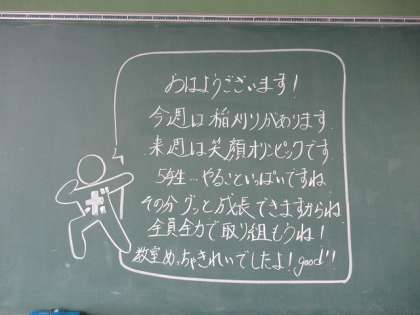 おはようございます！
今週は稲刈りがあります
来週は笑顔オリンピックです
5年生…やることいっぱいですね
その分グッと成長できますからね
全員全力で取り組もうね！
教室めっちゃきれいでしたよ！good!!